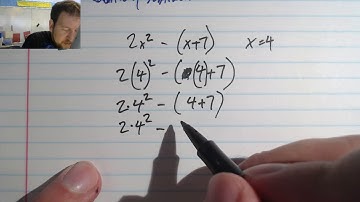 2x² - (x+7) x=4
2(4)² - ((4)+7)
2·4² - (4+7)
2·4² -